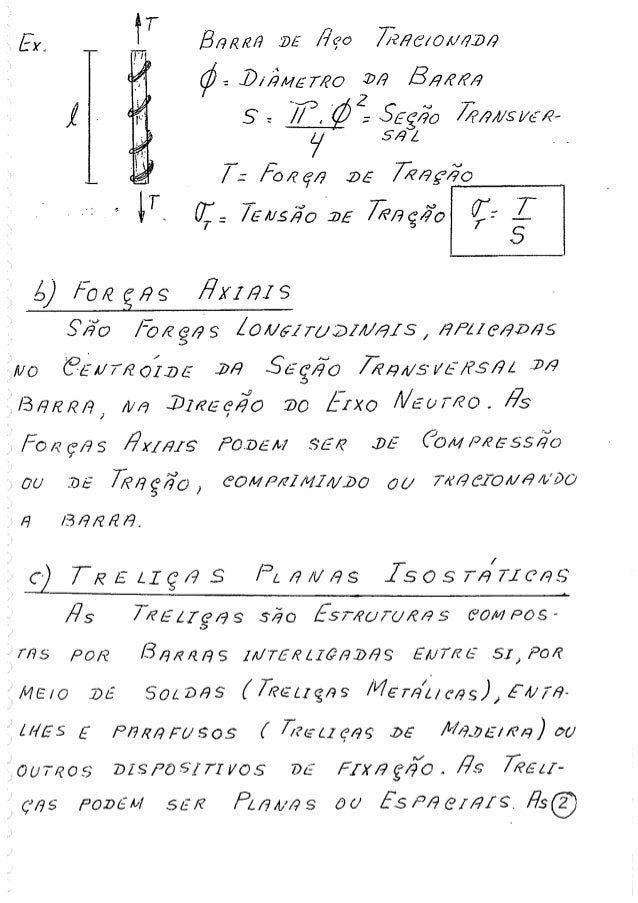 Ex.
T
l
T
BARRA DE AÇO TRACIONADA
φ = DIÂMETRO DA BARRA
S = π.φ²/4 = SEÇÃO TRANSVER-
SAL
T = FORÇA DE TRAÇÃO
σT = TENSÃO DE TRAÇÃO σT = T/S
b) FORÇAS AXIAIS
SÃO FORÇAS LONGITUDINAIS, APLICADAS
NO CENTRÓIDE DA SEÇÃO TRANSVERSAL DA
BARRA, NA DIREÇÃO DO EIXO NEUTRO. AS
FORÇAS AXIAIS PODEM SER DE COMPRESSÃO
OU DE TRAÇÃO, COMPRIMINDO OU TRACIONANDO
A BARRA.
c) TRELIÇAS PLANAS ISOSTÁTICAS
AS TRELIÇAS SÃO ESTRUTURAS COMPOS-
TAS POR BARRAS INTERLIGADAS ENTRE SI, POR
MEIO DE SOLDAS (TRELIÇAS METÁLICAS), ENTA-
LHES E PARAFUSOS (TRELIÇAS DE MADEIRA) OU
OUTROS DISPOSITIVOS DE FIXAÇÃO. AS TRELI-
ÇAS PODEM SER PLANAS OU ESPACIAIS. AS 2